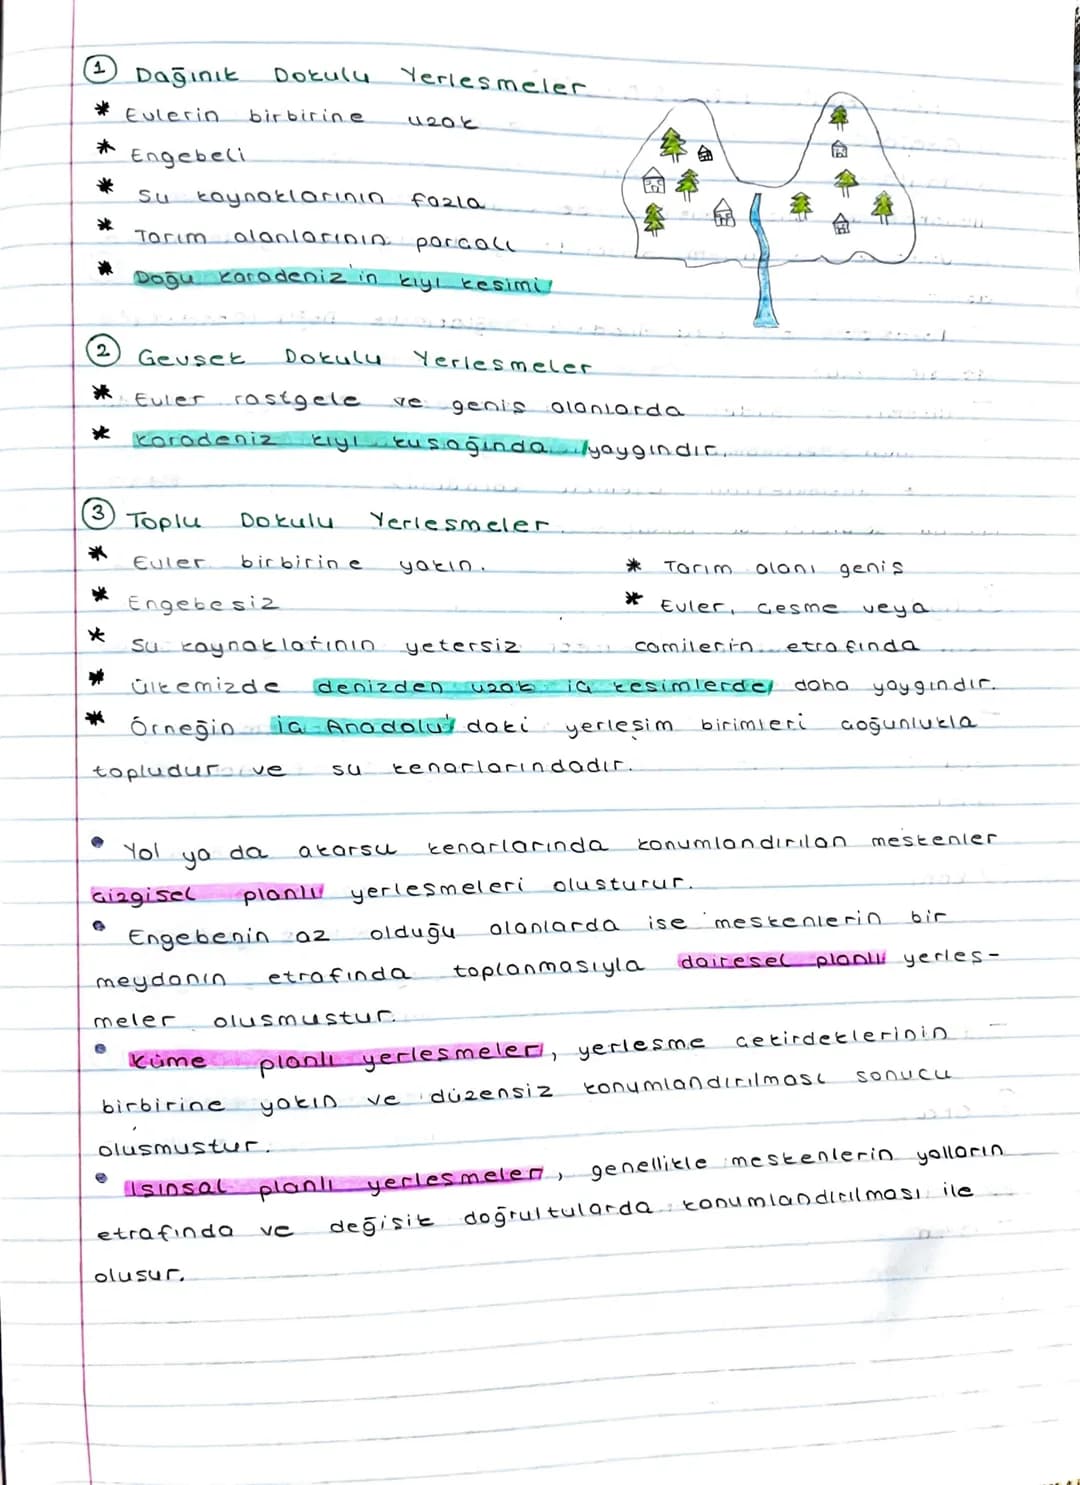 1 Dağınık Dokulu Yerleşmeler
* Evlerin birbirine uzak
* Engebeli
* Su kaynaklarının fazla
* Tarım alanlarının parçalı
* Doğu Karadeniz'in kıyı kesimi
2 Gevşek Dokulu Yerleşmeler
* Evler rastgele ve geniş alanlarda
* Karadeniz kıyı kuşağında yaygındır.
3 Toplu Dokulu Yerleşmeler
* Evler birbirine yakın.
* Engebesiz
* Su kaynaklarının yetersiz
* Tarım alanı geniş
* Evler, çeşme veya
camilerin etrafında
* Ülkemizde denizden uzak iç kesimlerde daha yaygındır.
* Örneğin İç Anadolu'daki yerleşim birimleri çoğunlukla
topludur ve su kenarlarındadır.
• Yol ya da akarsu kenarlarında konumlandırılan meskenler
çizgisel planlı yerleşmeleri oluşturur.
• Engebenin az olduğu alanlarda ise meskenlerin bir
meydanın etrafında toplanmasıyla dairesel planlı yerleş-
meler oluşmuştur.
• Küme planlı yerleşmeler, yerleşme çekirdeklerinin
birbirine yakın ve düzensiz konumlandırılması sonucu
oluşmuştur.
• Işınsal planlı yerleşmeler, genellikle meskenlerin yolların
etrafında ve değişik doğrultularda konumlandırılması ile
oluşur.